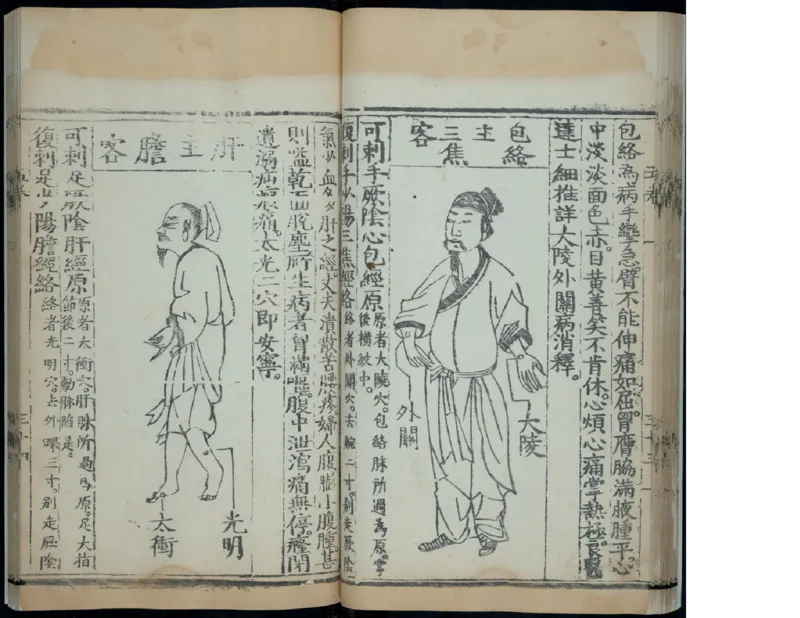 包絡為病手攣急。臂不能伸痛如屈。胷膺脇滿腋腫平。心
中淡淡面色赤。目黃善笑不肯休。心煩心痛掌熱極。良醫
達士細推詳。大陵外關病消釋。
包絡
主
三焦
客
大陵
外關
可刺手厥陰心包經原
原者大陵穴。包絡脉所過為原。掌
後橫紋中。
復刺手少陽三焦經絡
絡者外關穴。去腕二寸。別走厥陰
氣少血多肝之經。丈夫㿉疝苦腰疼。婦人腹膨小腹腫。甚
則嗌乾面脫塵。所生病者胷滿嘔。腹中泄瀉痛無停。癃閉
遺溺疝瘕痛。太光二穴即安寧。
肝主膽客
光明
太衝
可刺足厥陰肝經原
原者太衝穴。肝脉所過為原。足大指
節後二寸。動脉陷是。
復刺足少陽膽經絡
絡者光明穴。去外踝三寸。別走厥陰